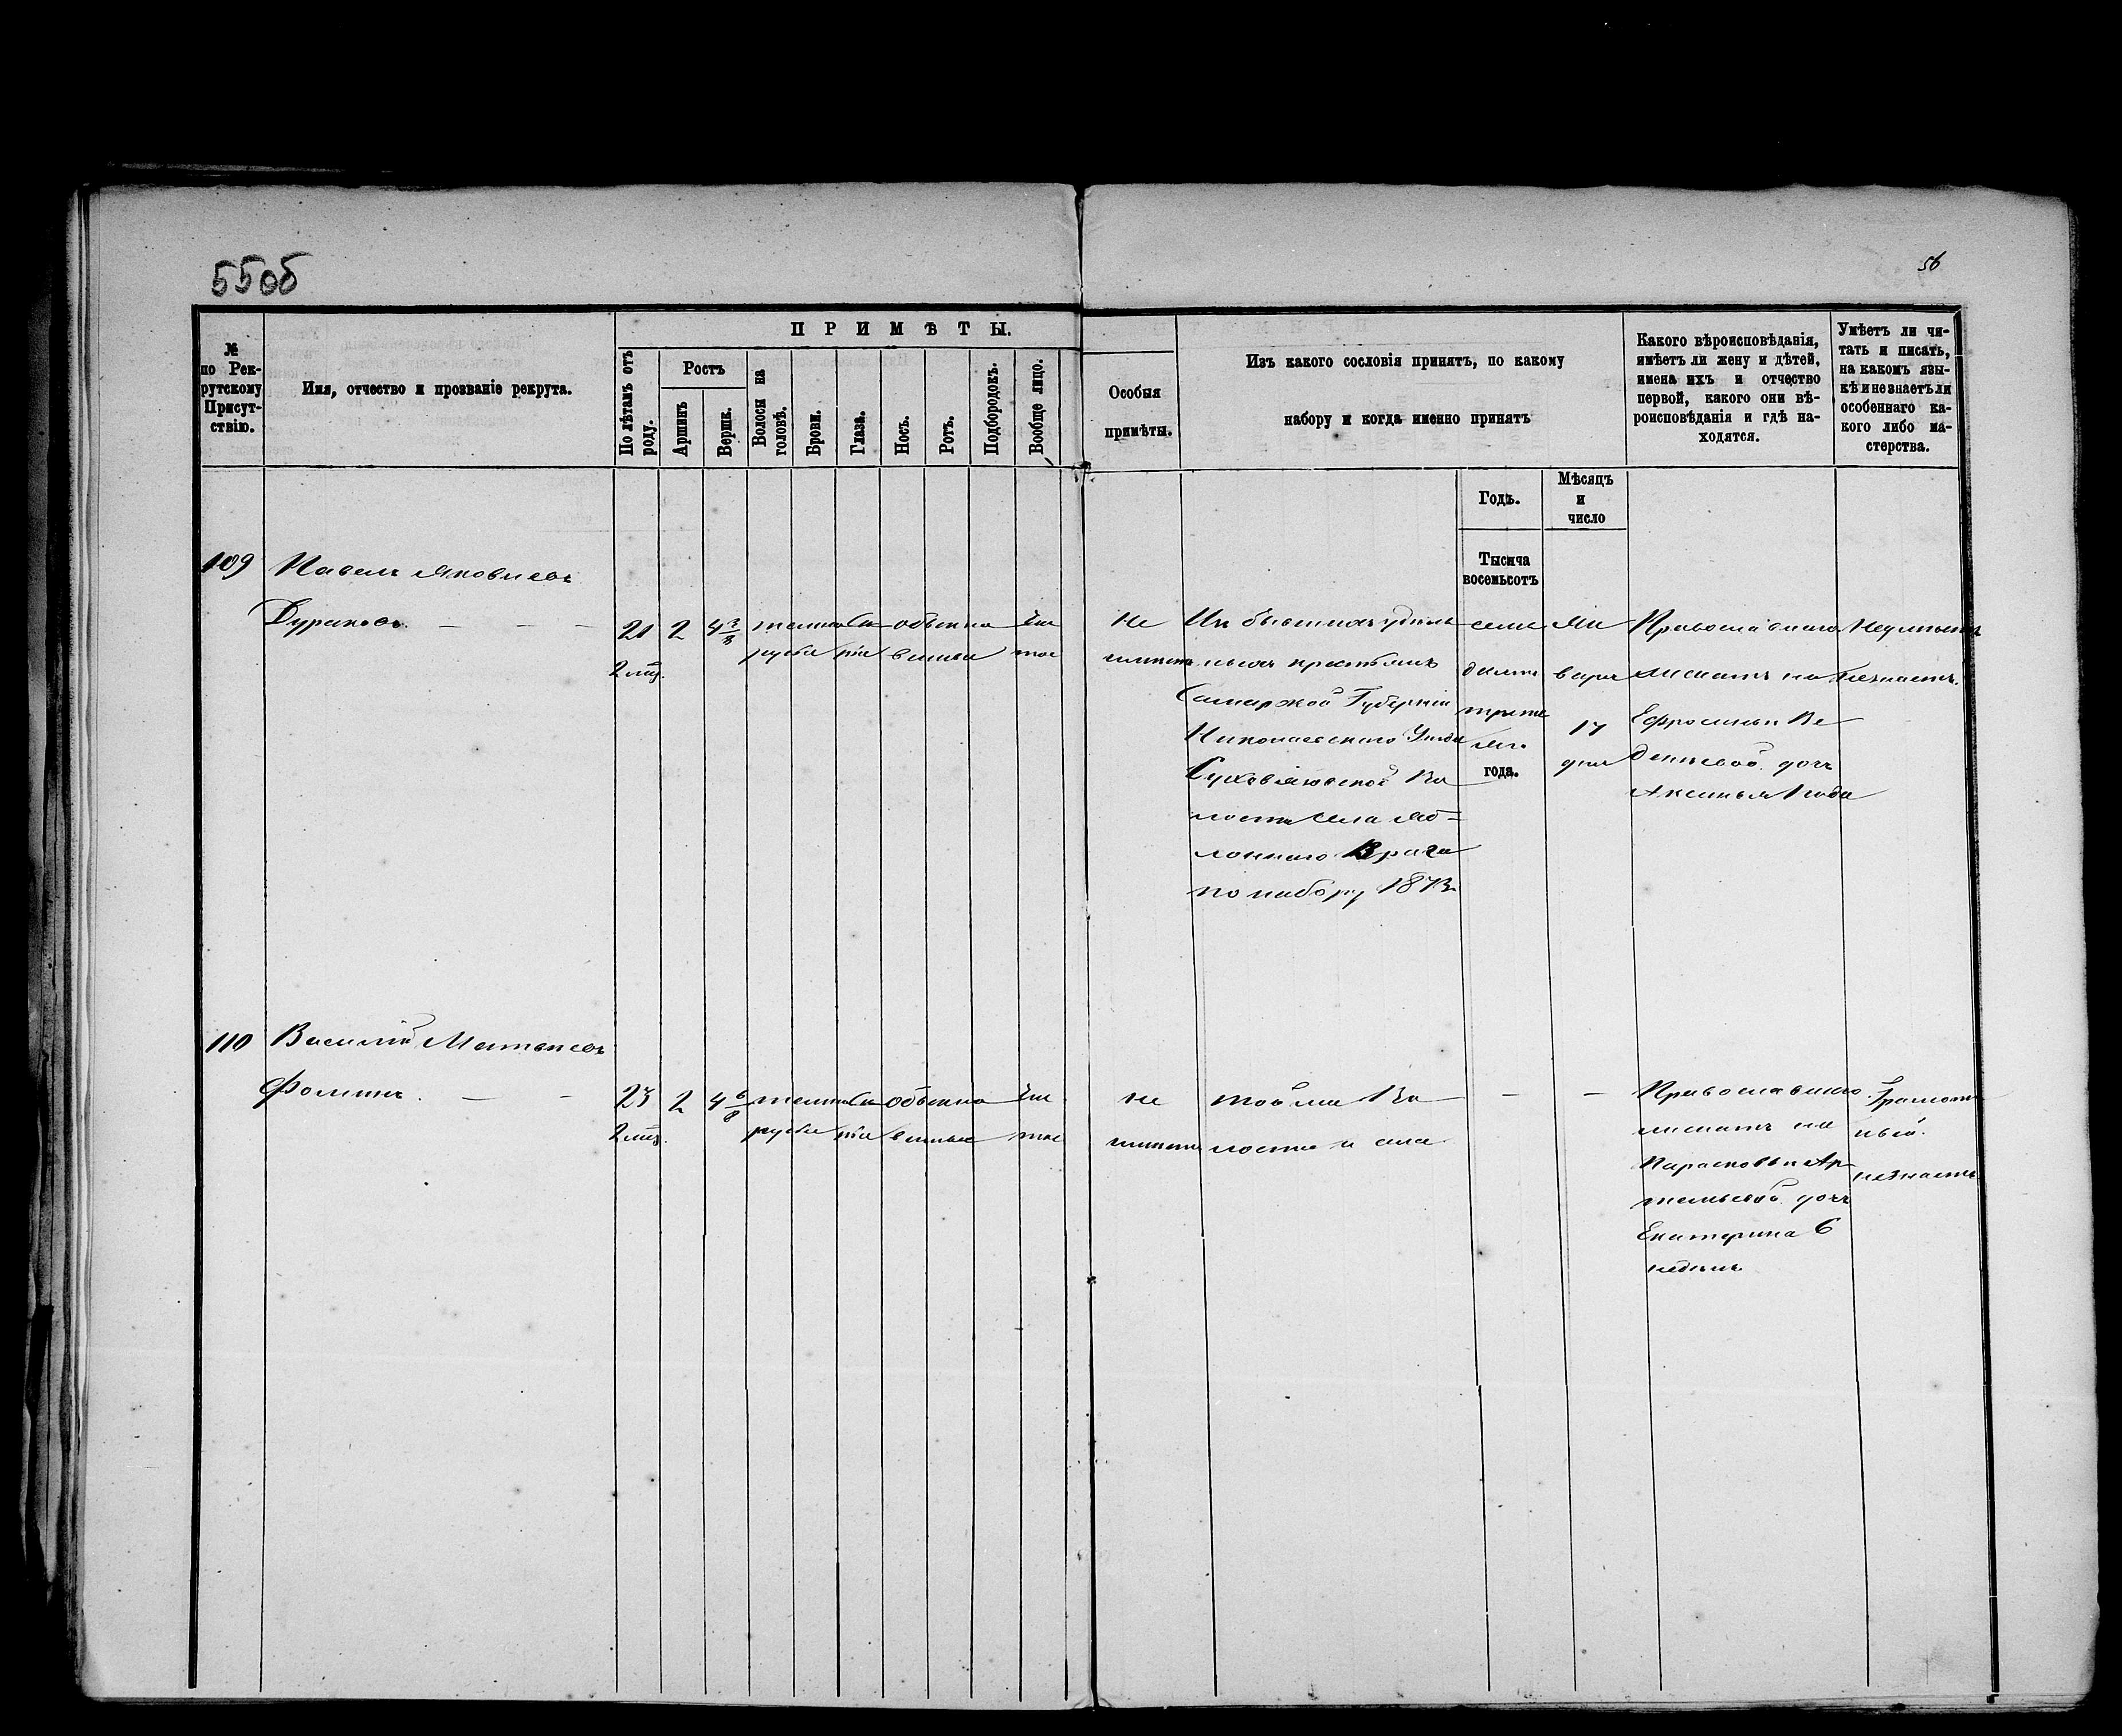 55об
56
№
по Рек-
рутскому
Присут-
ствію.
Имя, отчество и прозваніе рекрута.
ПРИМѢТЫ.
По лѣтамъ отъ
роду.
Ростъ
Аршинъ
Вершк.
Волосы на
головѣ.
Брови.
Глаза.
Носъ.
Ротъ.
Подбородокъ.
Вообще лицо.
Особыя
примѣты.
Изъ какого сословія принятъ, по какому
набору и когда именно принятъ
Какого вѣроисповѣданія,
имѣетъ ли жену и дѣтей,
имена ихъ и отчество
первой, какого они вѣ-
роисповѣданія и гдѣ на-
ходятся.
Умѣетъ ли чи-
тать и писать,
на какомъ язы-
кѣ и не знаетъ ли
особеннаго ка-
кого либо ма-
стерства.
Годъ.
Мѣсяцъ
и
число
Тысяча
восемьсотъ
109
Павелъ Яковлевъ
Дураковъ
21
2 мѣс.
2
4 3/8
темно
русые
Сѣ
рые
обыкно
венные
чис
тое
Не
имѣетъ
Изъ бывшихъ удѣль
ныхъ крестьянъ
Самарской Губерніи
Николаевскаго Уѣзда
Волости Села Яб-
лоннаго Врага
по набору 1873
семь
десятъ
третья
го
года.
Ян
варя
17
дня
Православнаго
женатъ на
Ефросиньи Ве
дочь
Аксинья 1 года
Неумѣетъ
Незнаетъ.
110
Василій Матвѣевъ
Фоминъ
23
2 мѣс.
2
4 6/8
темно
русые
Сѣ
рые
обыкно
венные
чис
тое
не
имѣетъ
той же Во
лости и села
Православнаго
женатъ на
Парасковьи Ар
темьевой дочь
Екатерина 6
недѣль
Грамот
ный.
незнаетъ